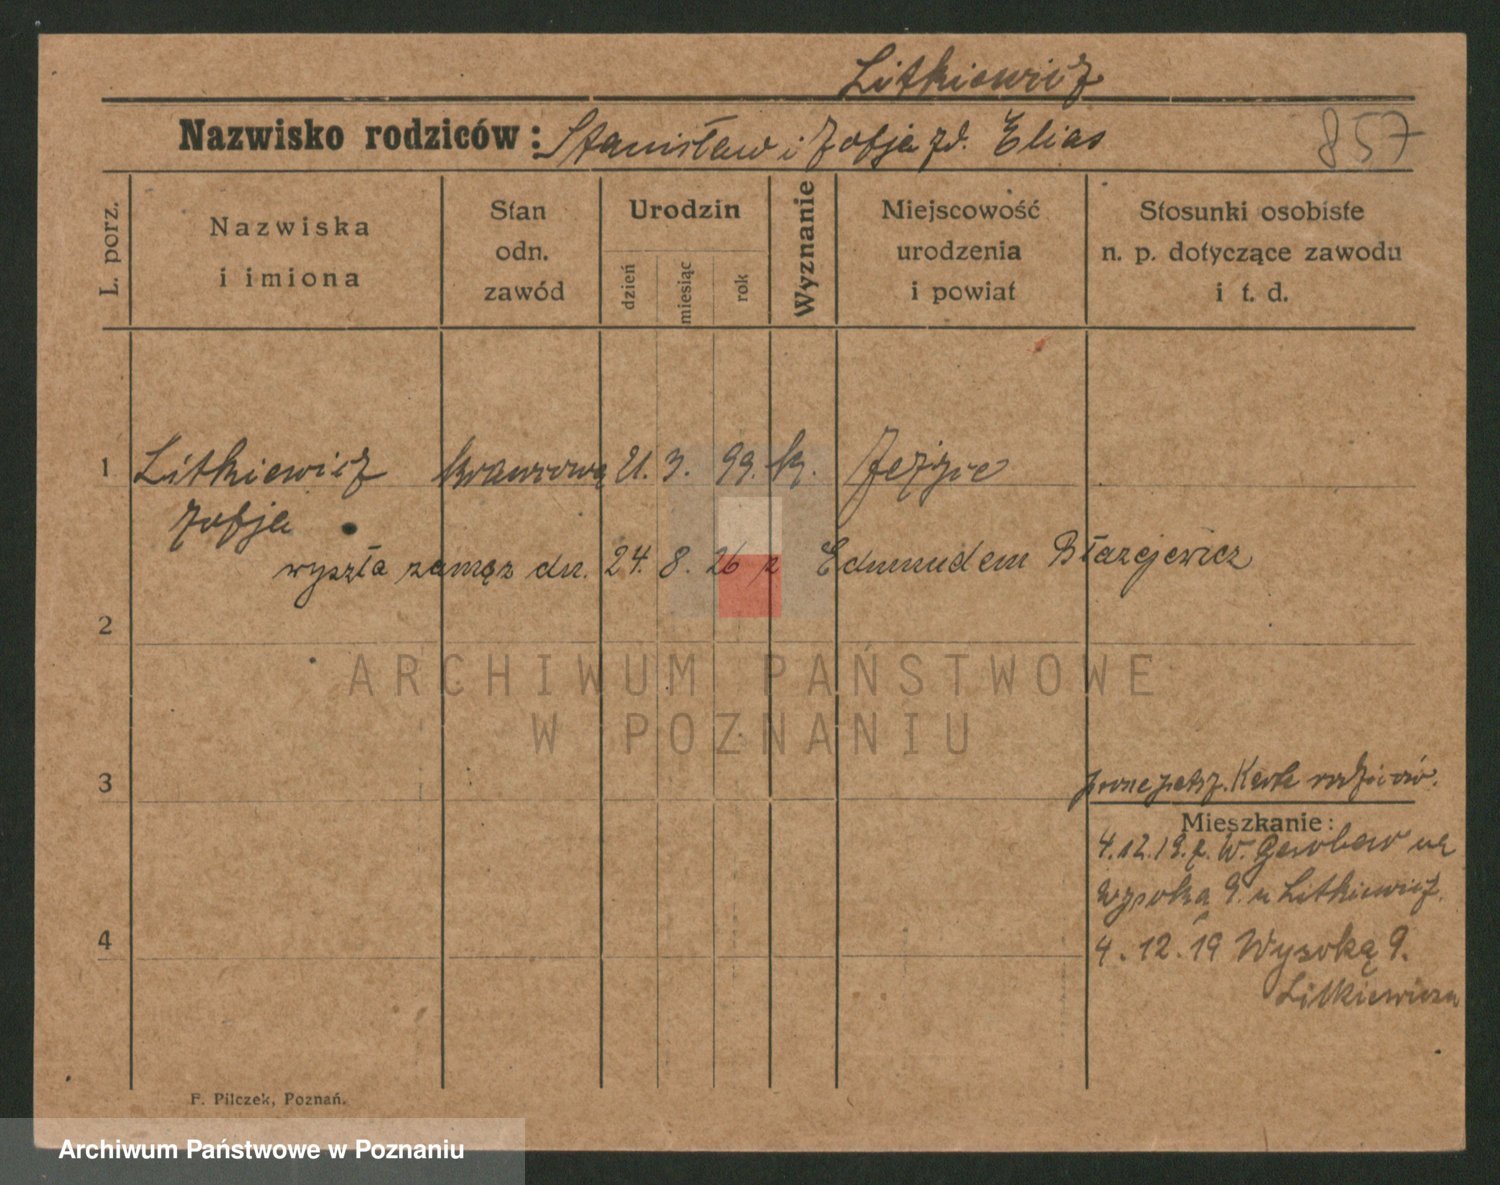 Litkiewicz
Nazwisko rodziców: Stanisław i Zofja zd. Elias
857
L. porz.
Nazwiska
i imiona
Stan
odn.
zawód
Urodzin
dzień
miesiąc
rok
Wyznanie
Miejscowość
urodzenia
i powiat
Stosunki osobiste
n. p. dotyczące zawodu
i t. d.
1 Litkiewicz krawcową 21. 3. 99. k. Jeżyce
Zofja
wyszła zamąż dn. 24. 8. 26 z Edmundem Błażejewicz
2
ARCHIWUM PAŃSTWOWE
W POZNANIU
3
Karta rodziców.
Mieszkanie:
4.12.19. z. W. na
Wysoka 9. u Litkiewicz.
4
4.12.19 Wysoką 9.
Litkiewicza
F. Pilczek, Poznań.
Archiwum Państwowe w Poznaniu